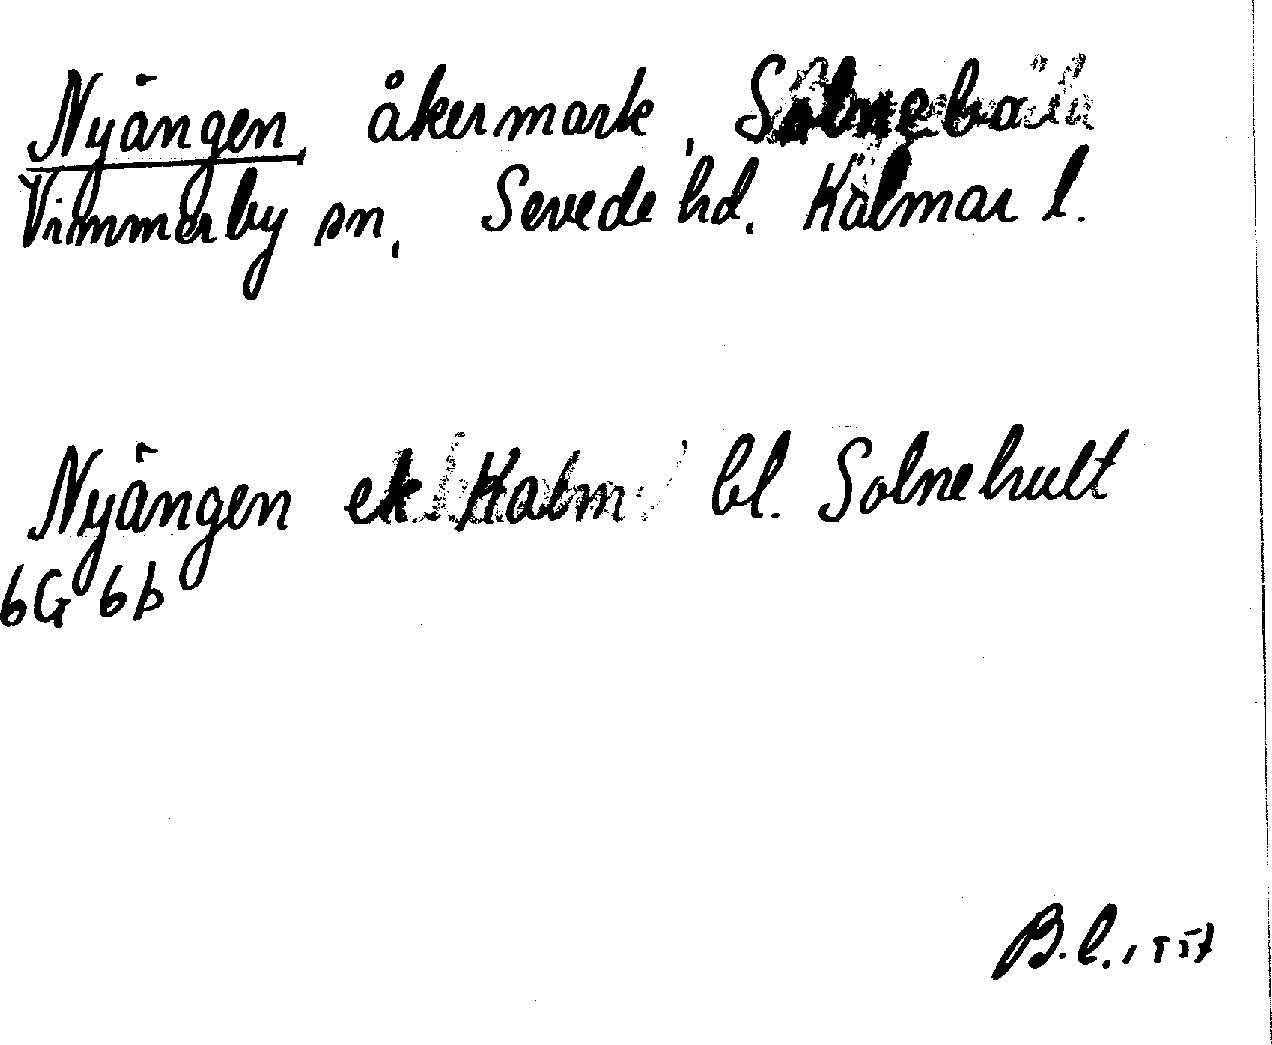 Nyängen, åkermark, Solnebäck
Vimmerby sn, Sevede hd. Kalmar l.
Nyängen ek Kalm bl. Solnehult
6G 6b